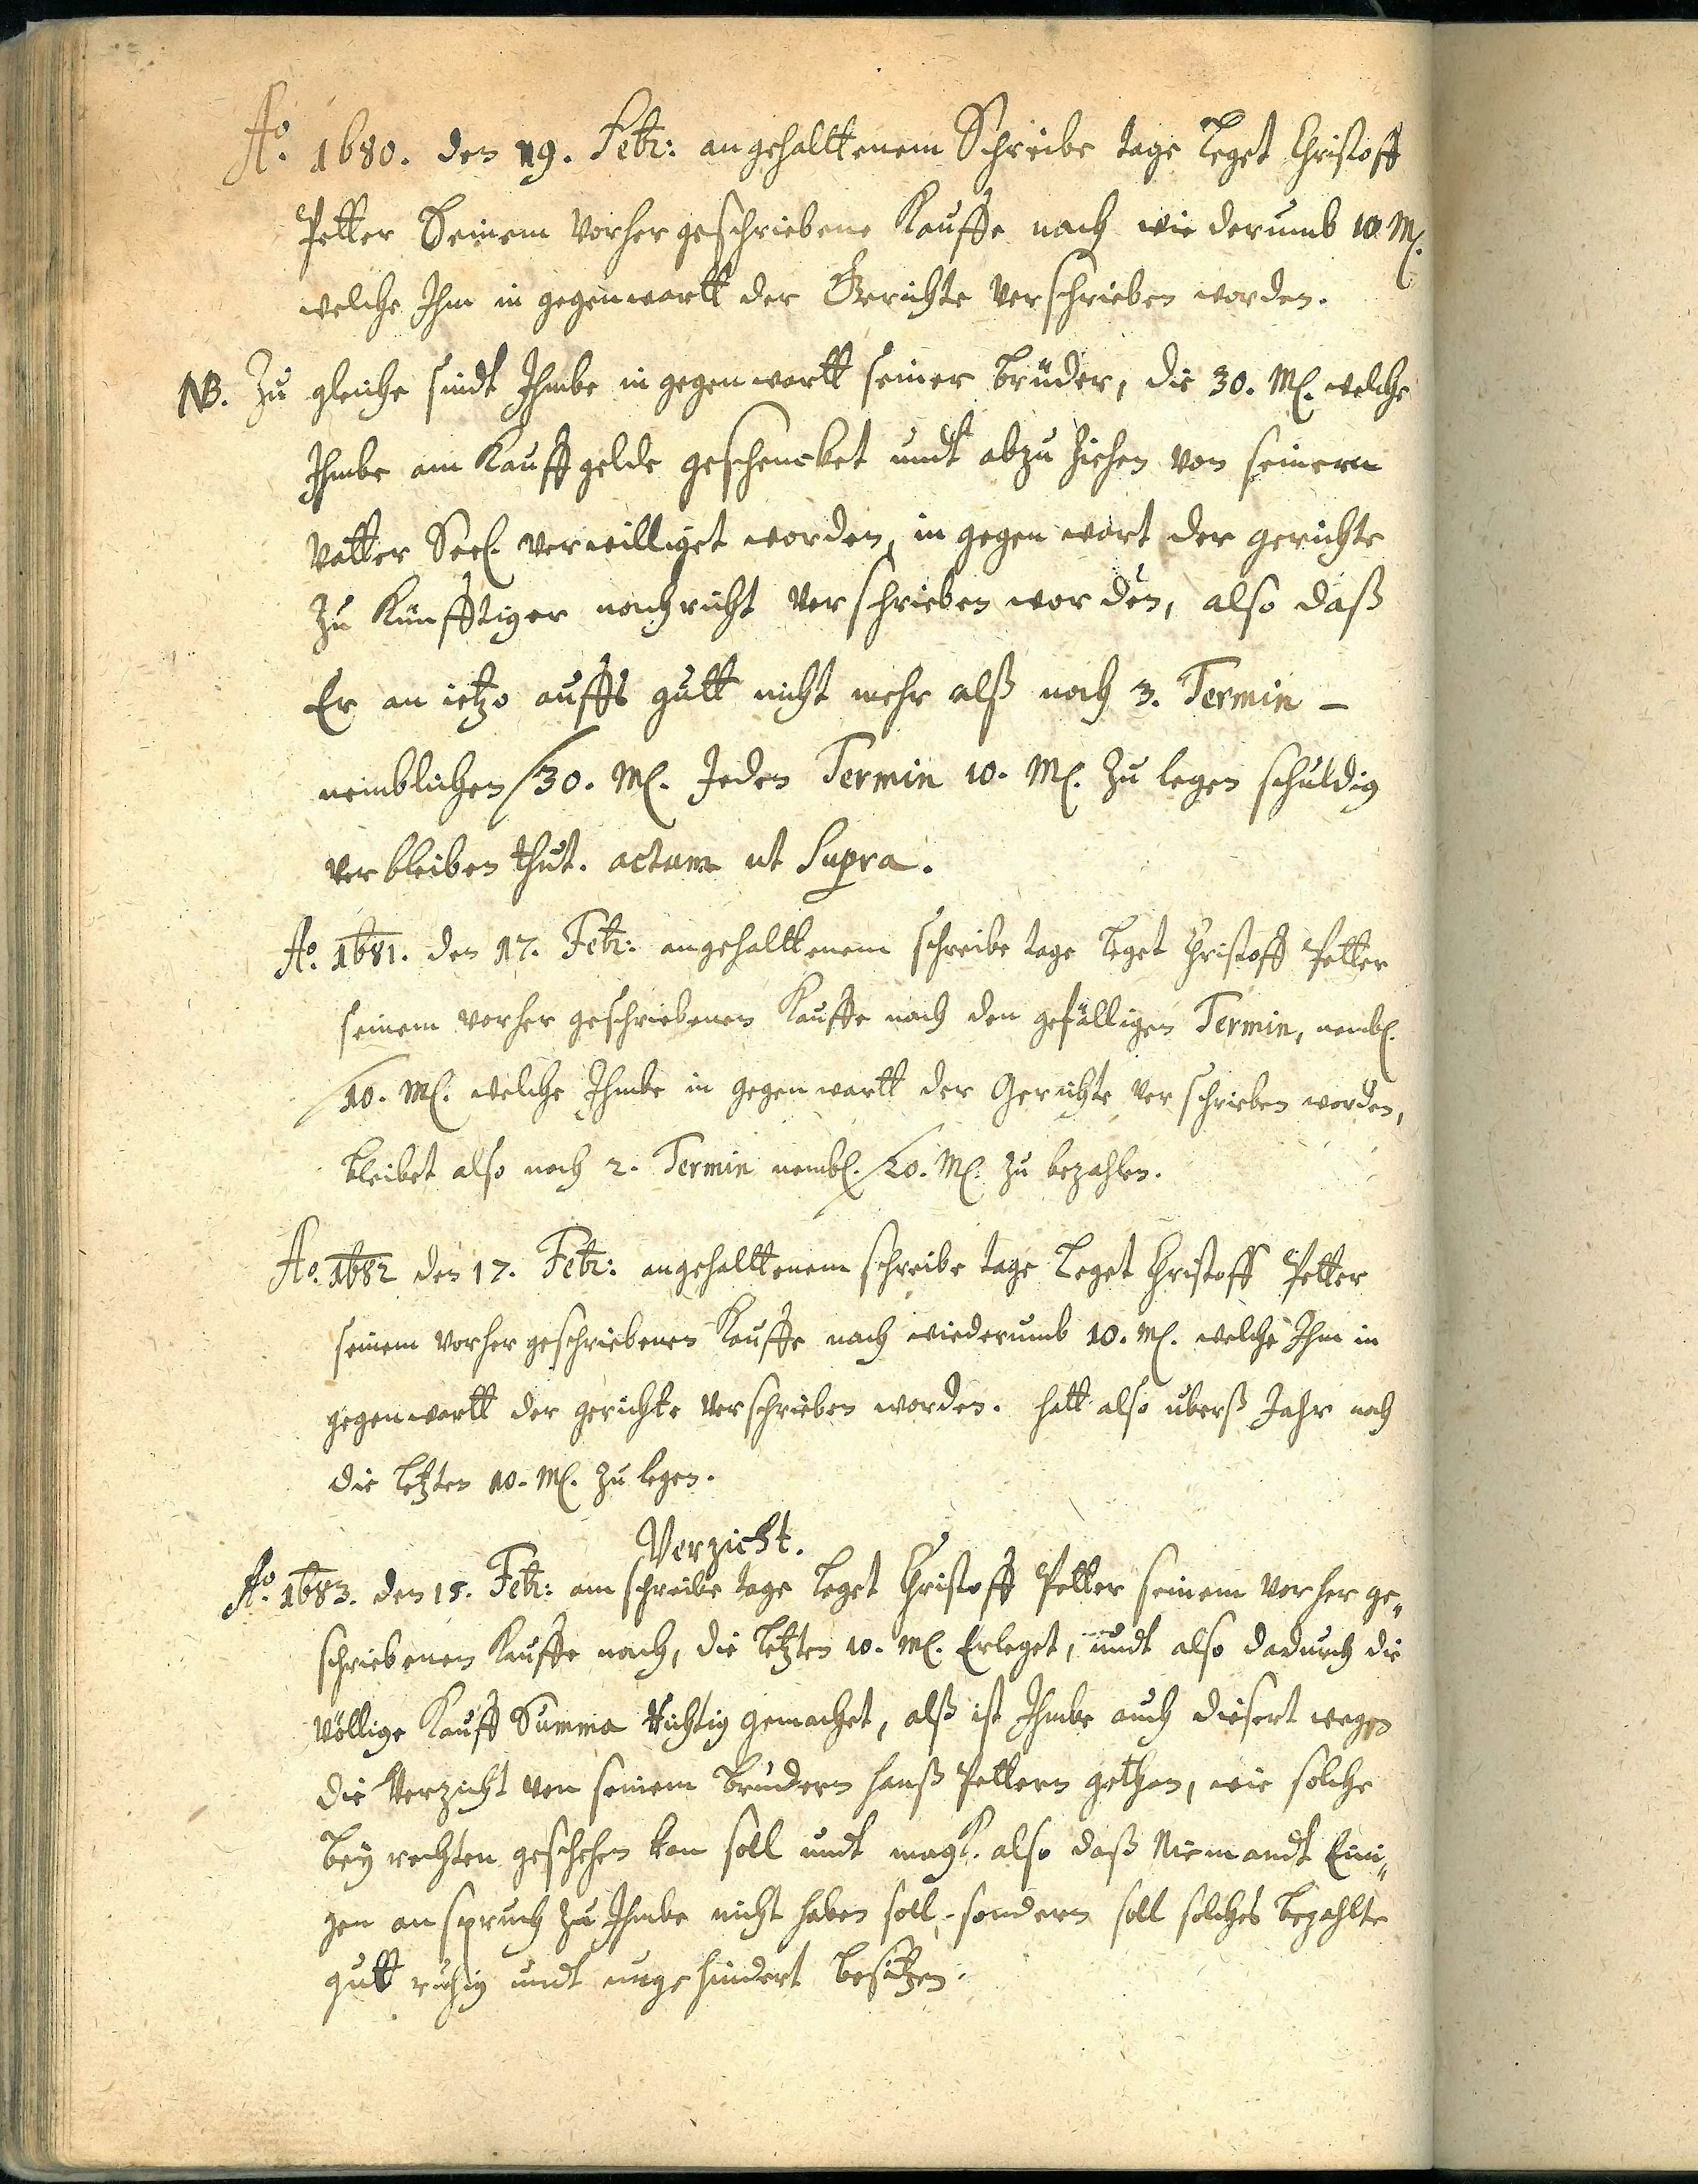 Ao. 1680. den 19. Febr: angehalttenem Schreibe tage leget Christoff
Petter Seinem vorher geschriebene Kauffe nach wiederumb 10 M.
welche Ihm in gegenwartt der Gerichte verschrieben worden.
NB. Zu gleiche sindt Ihmbe in gegenwartt seiner brüder, die 30. M. welche
Ihmbe am Kauffgelde geschencket undt abzu ziehen von seinem
Vatter Seel. verwilliget worden, in gegenwart der gerichte
zu künfftiger nachricht verschrieben worden, also daß
Er an ietzo auffs gutt nicht mehr alß noch 3. Termin –
neinblichen / 30. M. Jeden Termin 10. M. zu legen schuldig
verbleiben thut. actum ut Supra.
Ao. 1681. den 17. Febr: angehalttenem schreibe tage leget Christoff Petter
seinem vorher geschriebenen Kauffe nach den gefälligen Termin, nembl.
/ 10. M. welche Ihmbe in gegenwartt der Gerichte verschrieben worden,
bleibet also noch 2. Termin nembl. / 20. M. zu bezahlen.
Ao. 1682 den 17. Febr: angehalttenem schreibe tage leget Christoff Petter
seinem vorher geschriebenen Kauffe nach wiederumb 10. M. welche Ihm in
gegenwartt der gerichte verschrieben worden. hatt also überß Jahr noch
die letzten 10. M. zu legen.
Verzicht.
Ao. 1683. den 15. Febr: am schreibe tage leget Christoff Petter seinem vorher ge„
schriebenen Kauffe nach, die letzten 10. M. Erleget, undt also dadurch die
völlige Kauff Summa Richtig gemachet, alß ist Ihmbe auch diesert wegen
die Verzicht von seinem brudern Hanß Pettern gethan, wie solche
bey rechten geschehen kan soll undt magk. also daß Niemandt Eini„
gen anspruch zu Ihmbe nicht haben soll, sondern soll solches bezahlte
gutt ruhig undt ungehindert besitzen.